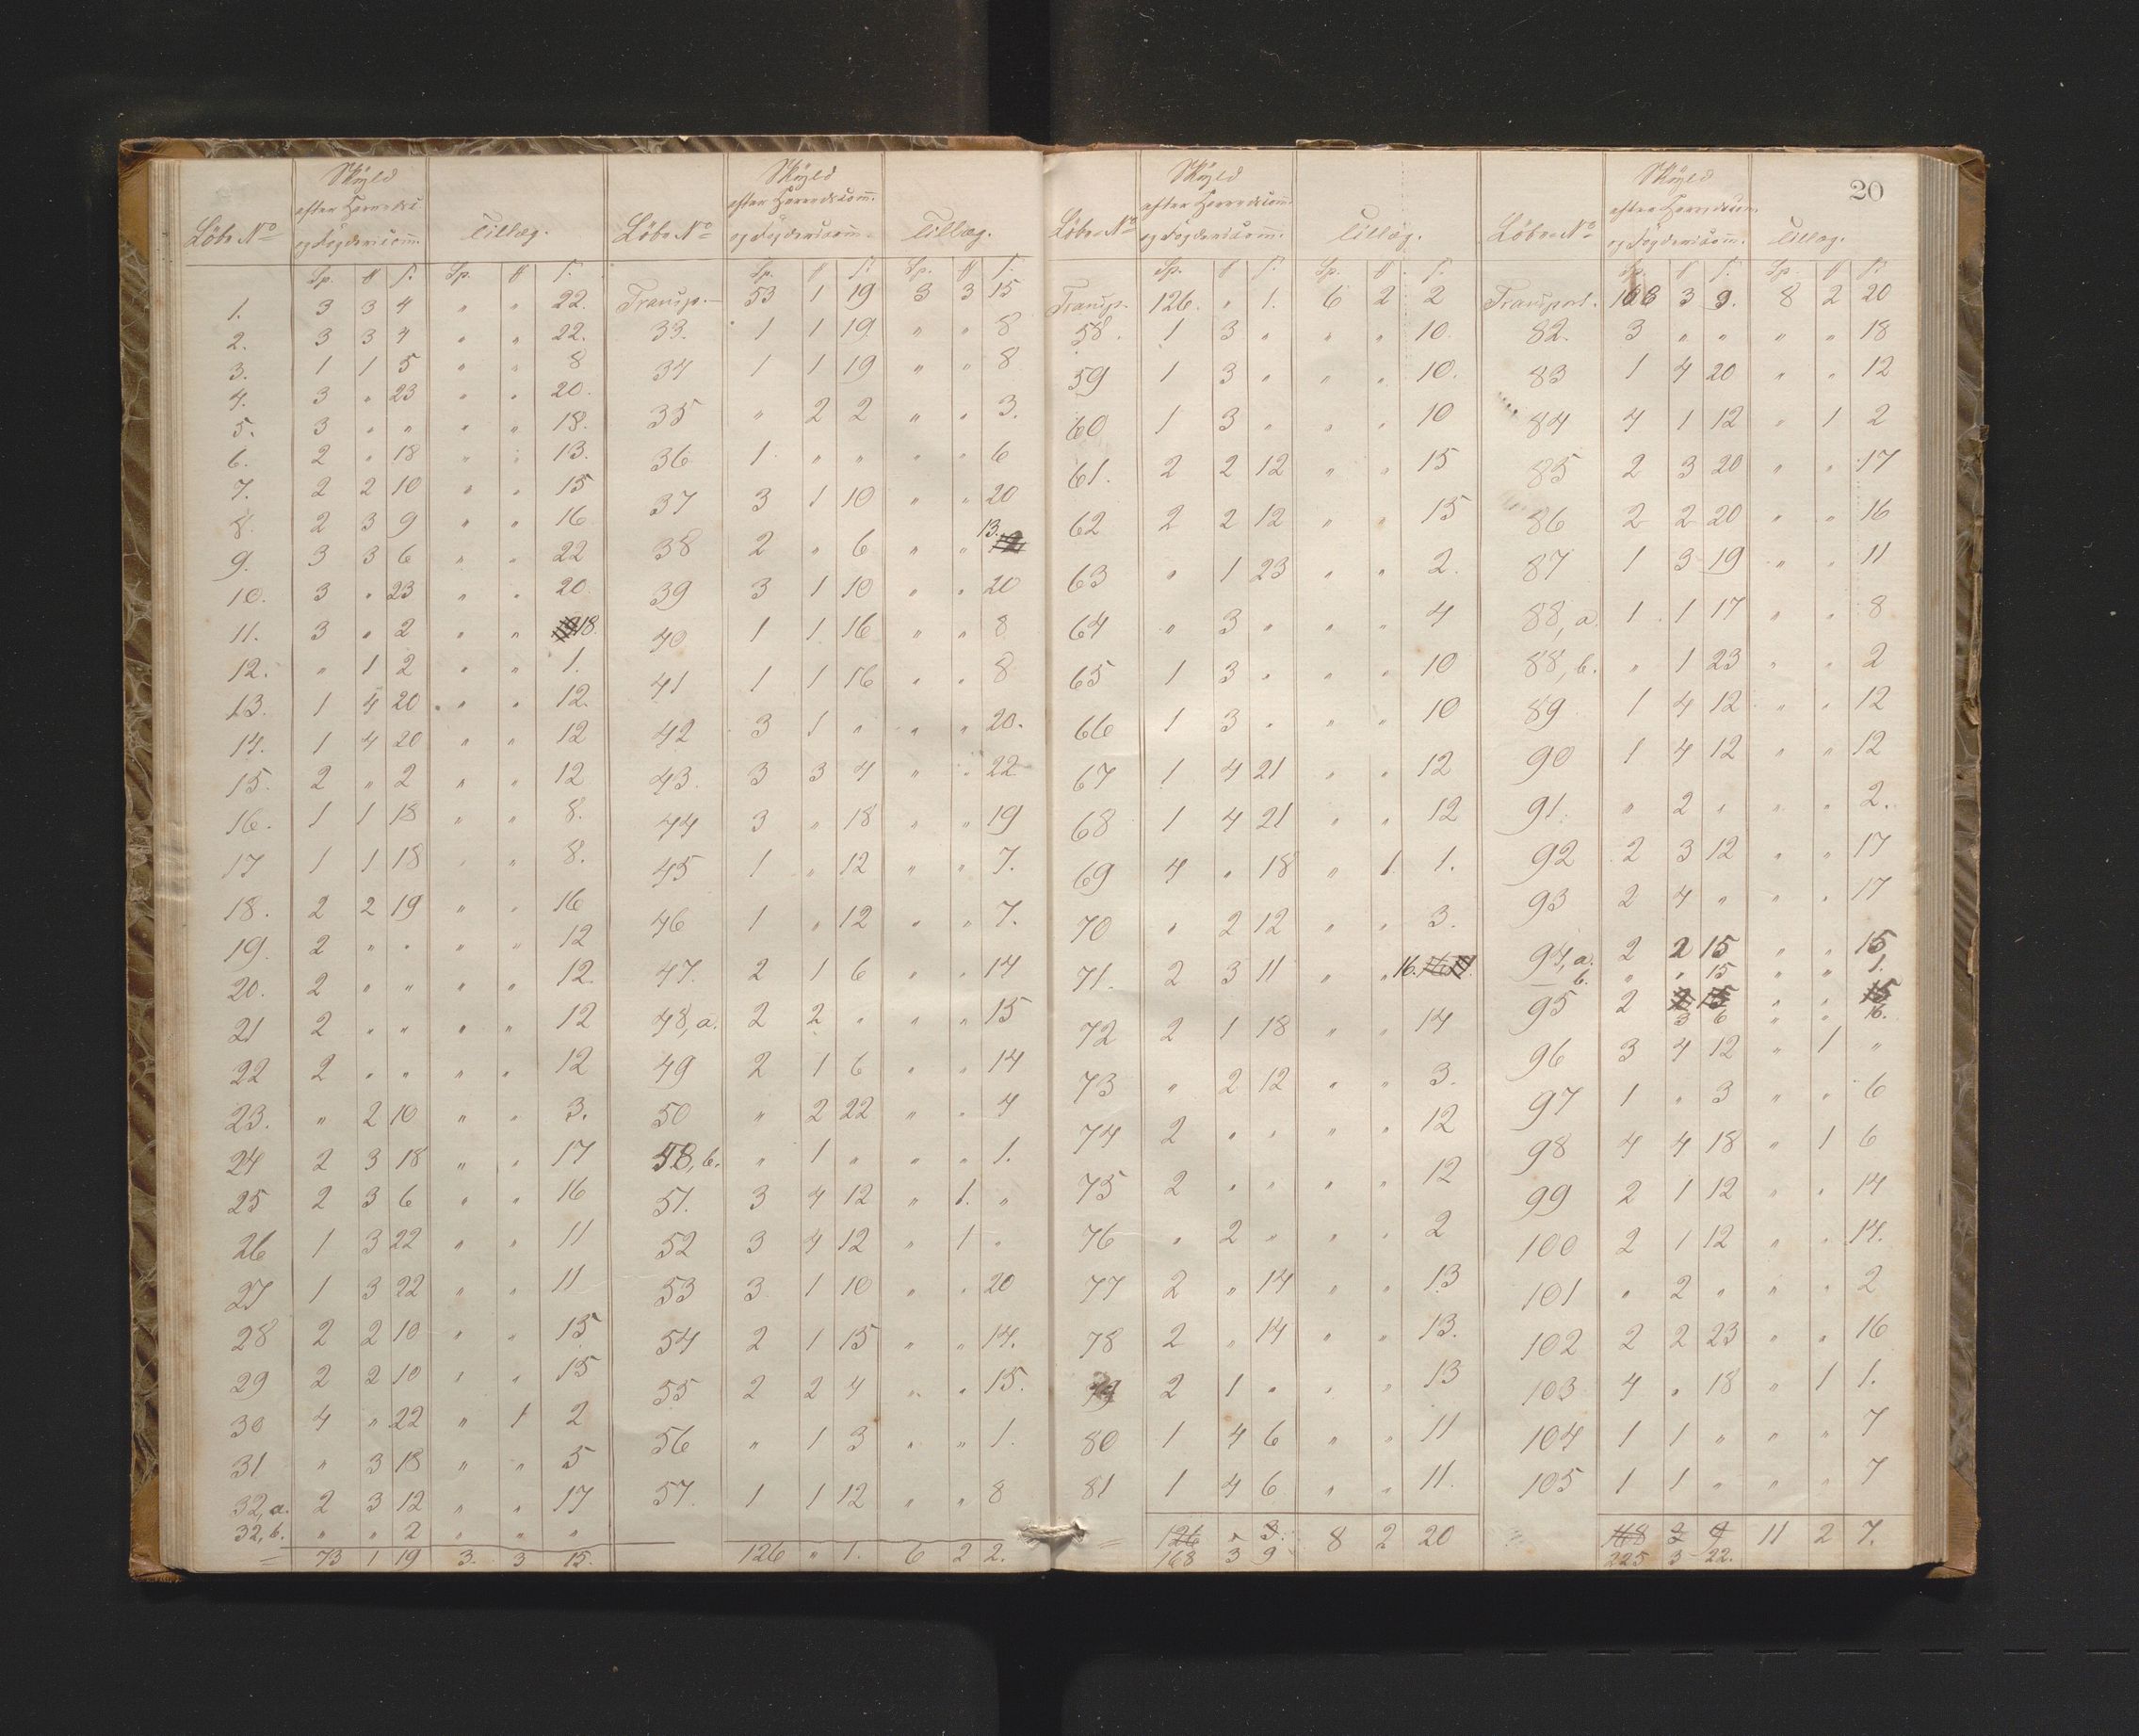 20
Skyld Skyld Skyld Skyld
Löbe No Tillæg. Löbe No Tillæg. Löbe No Tillæg. Löbe No Tillæg.
1. 3 3 4 " " 22.
2. 3 3 4 " " 22.
3. 1 1 5 " " 8
4. 3 " 23 " " 20.
5. 3 " " " " 18.
6. 2 " 18 " " 13.
7. 2 2 10 " " 15
8. 2 3 9 " " 16
9. 3 3 6 " " 22
10. 3 " 23 " " 20
11. 3 " 2 " " 18.
12. " 1 2 " " 1.
13. 1 4 20 " " 12.
14. 1 4 20 " " 12
15. 2 " 2 " " 12
16. 1 1 18 " " 8.
17 1 1 18 " " 8.
18. 2 2 19 " " 16
19. 2 " " " " 12
20. 2 " " " " 12.
21 2 " " " " 12
22 2 " " " " 12
23. " 2 10 " " 3.
24 2 3 18 " " 17
25 2 3 6 " " 16
26 1 3 22 " " 11
27 1 3 22 " " 11
28 2 2 10 " " 15
29 2 2 10 " " 15
30 4 " 22 " 1 2
31 " 3 18 " " 5
32, a. 2 3 12 " " 17
32, b. " " 2 " " "
= 73 1 19 3. 3 15.
Transp. 53 1 19 3 3 15
33. 1 1 19 " " 8
34 1 1 19 " " 8
35 " 2 2 " " 3.
36 1 " " " " 6
37 3 1 10 " " 20
38 2 " 6 " " 13.
39 3 1 10 " " 20
40 1 1 16 " " 8
41 1 1 16 " " 8
42 3 1 " " " 20.
43. 3 3 4 " " 22
44 3 " 18 " " 19
45 1 " 12 " " 7.
46 1 " 12 " " 7.
47. 2 1 6 " " 14
48, a. 2 2 " " " 15
49 2 1 6 " " 14
50 " 2 22 " " 4
48, b. " 1 " " " 1.
51. 3 4 12 " 1. "
52 3 4 12 " 1 "
53 3 1 10 " " 20
54 2 1 15 " " 14.
55 2 2 4 " " 15.
56 " 1 3 " " 1.
57. 1 1 12 " " 8
126 " 1. 6 2 2.
Transp. 126. " 1. 6 2 2
58. 1 3 " " " 10.
59 1 3 " " " 10.
60 1 3 " " " 10
61. 2 2 12 " " 15
62 2 2 12 " " 15
63 " 1 23 " " 2.
64 " 3 " " " 4
65 1 3 " " " 10
66 1 3 " " " 10
67 1 4 21 " " 12
68 1 4 21 " " 12
69 4 " 18 " 1 1.
70 " 2 12 " " 3.
71. 2 3 11 " " 16.
72 2 1 18 " " 14
73 " 2 12 " " 3.
74 2 " " " " 12
75 2 " " " " 12
76 " 2 " " " 2
77 2 " 14 " " 13
78 2 " 14 " " 13.
79 2 1 " " " 13
80 1 4 6 " " 11
81 1 4 6 " " 11.
= 126 " 3. 8 2 20
168 3 9
Transport. 168 3 9. 8 2 20
82. 3 " " " " 18
83 1 4 20 " " 12
84 4 1 12 " 1 2
85 2 3 20 " " 17
86 2 2 20 " " 16
87 1 3 19 " " 11
88, a. 1 1 17 " " 8
88, b. " 1 23 " " 2
89 1 4 12 " " 12
90 1 4 12 " " 12
91. " 2 " " " 2.
92 2 3 12 " " 17
93 2 4 " " " 17
94, a. 2 2 15 " " 15
b. " " 15 " " 1.
95 2 2 15 " " 15
3 6 " " 16.
96 3 4 12 " 1 "
97 1 " 3 " " 6
98 4 4 18 " 1 6
99 2 1 12 " " 14
100 2 1 12 " " 14.
101 " 2 " " " 2
102 2 2 23 " " 16
103 4 " 18 " 1 1.
104 1 1 " " " 7
105 1 1 " " " 7
11 2 7.
225 3 22.